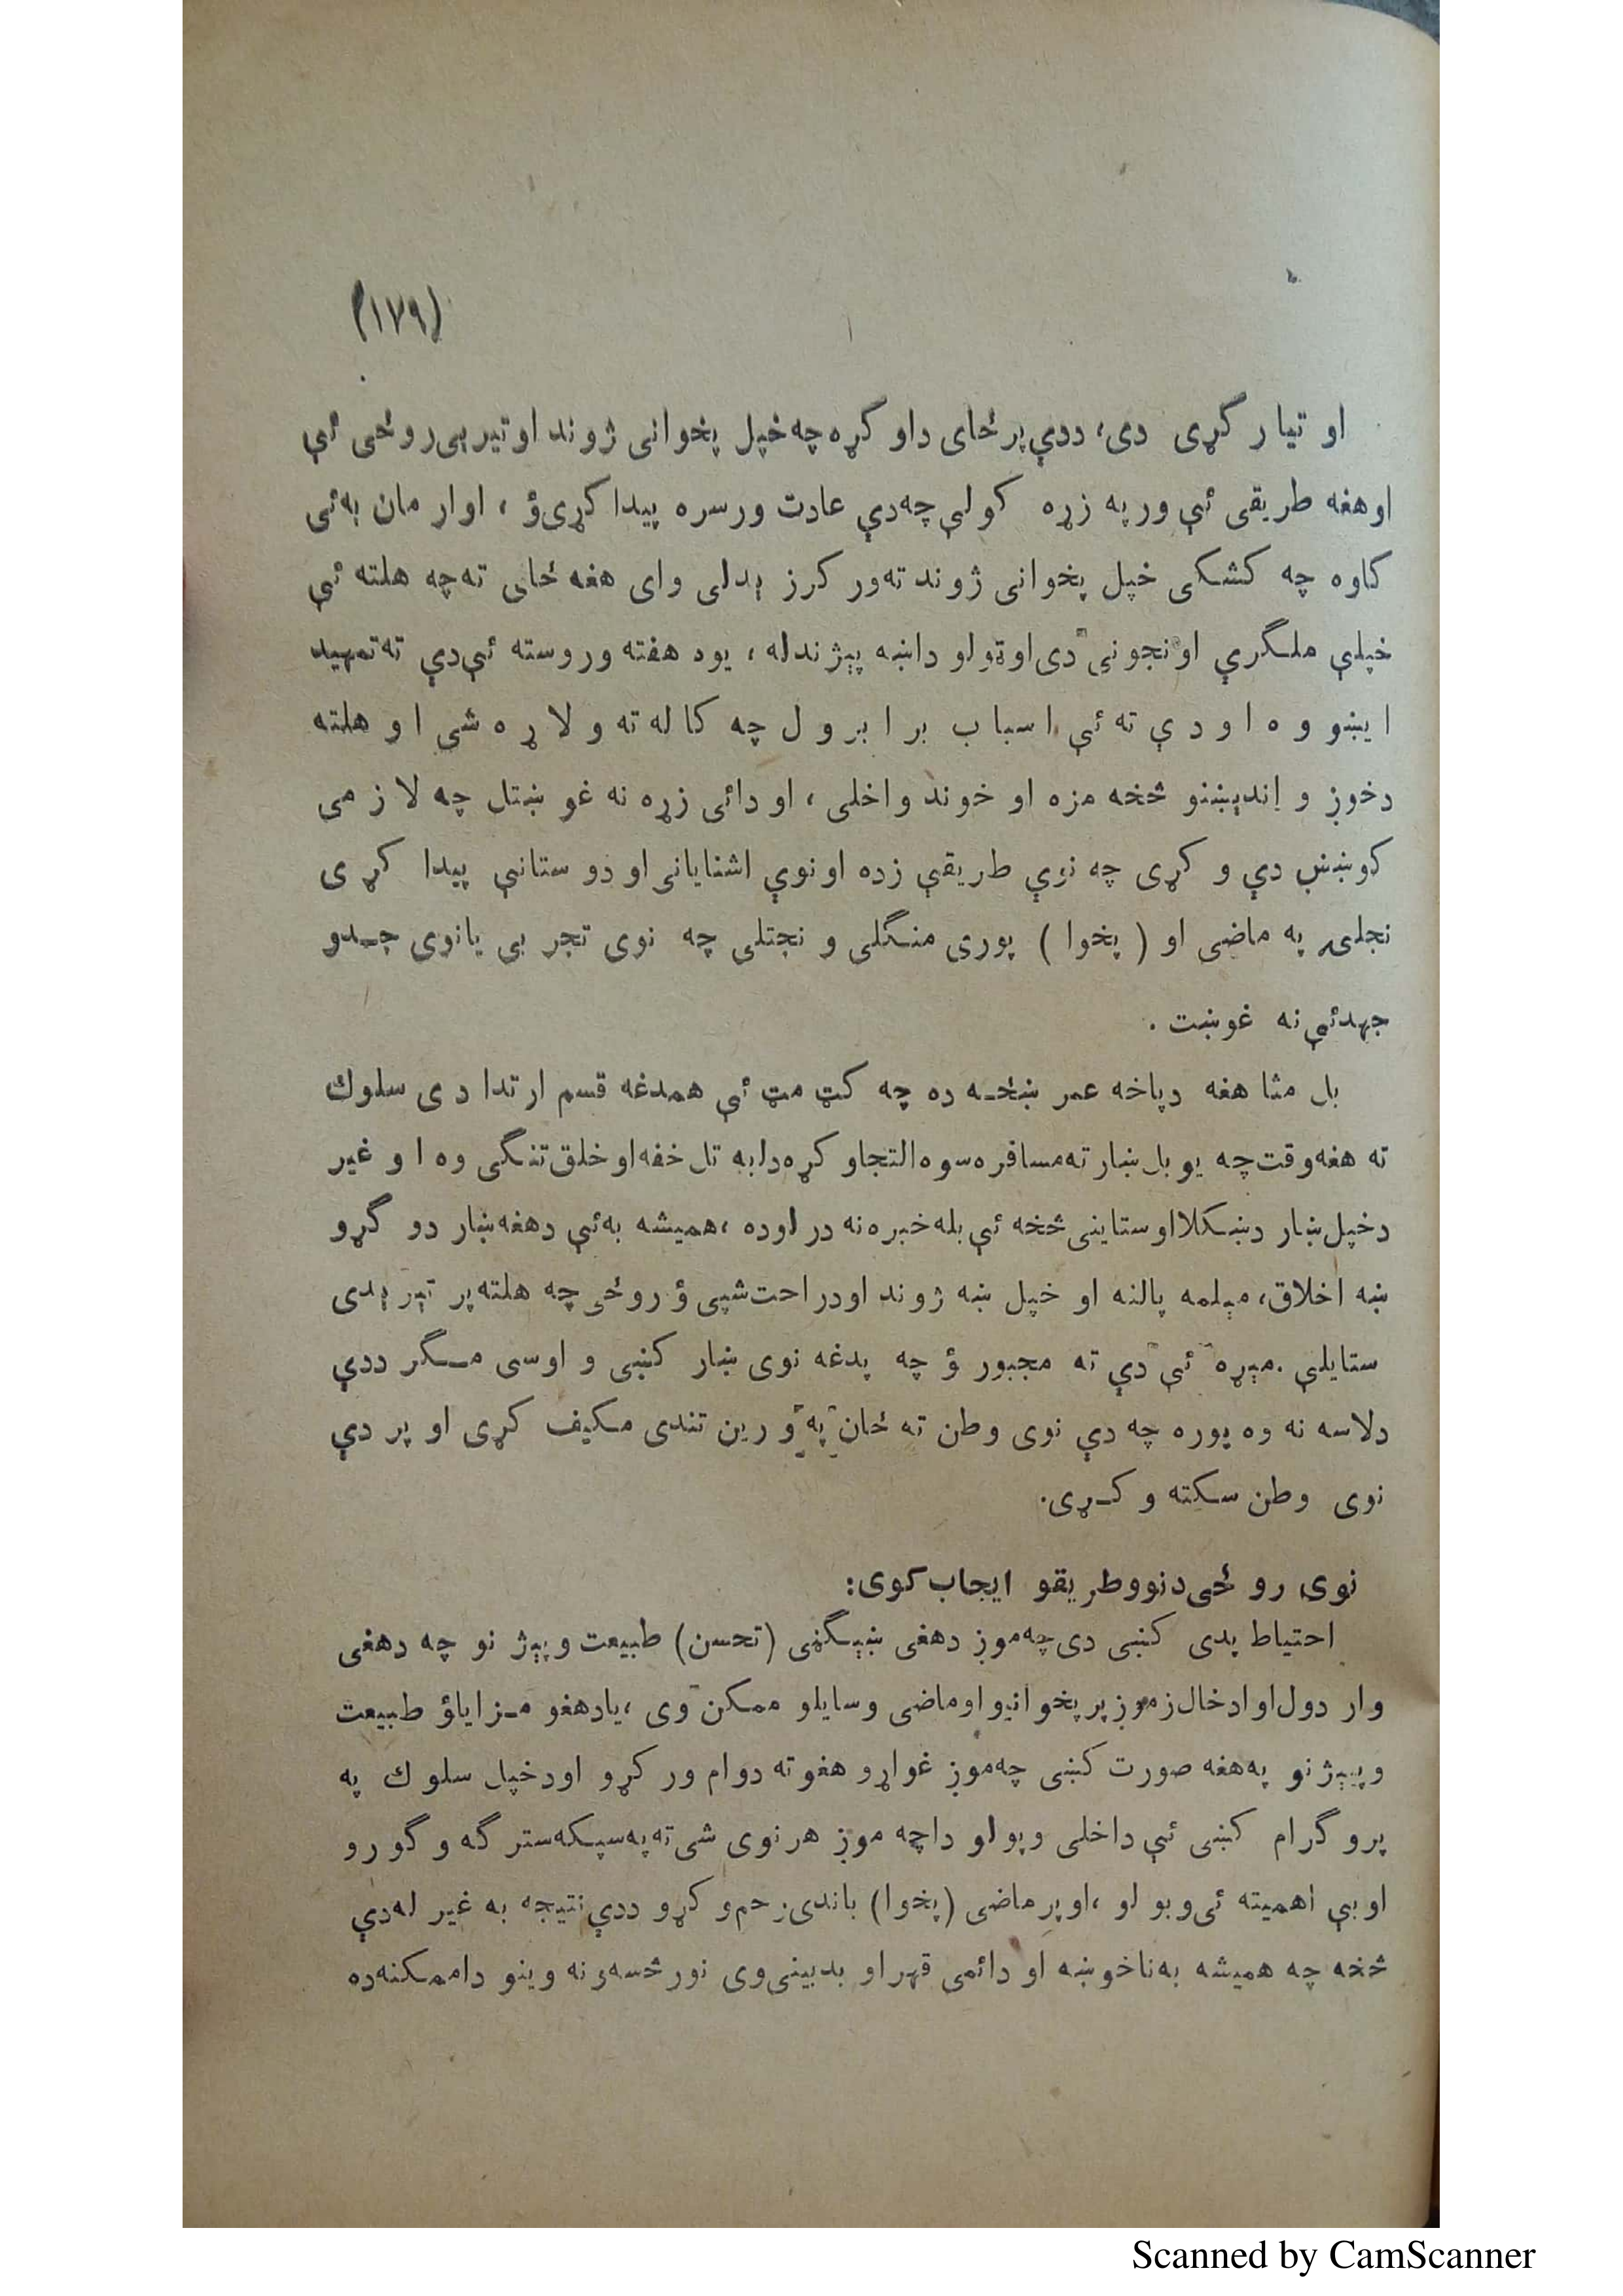 (۱۷۹)
او تیار گړی دی، ددې پر ځای داو گړه چه خپل پخوانی ژوند او تیر بی روځی ئې
او هغه طریقی ئې ور په زړه کولې چه دې عادت ورسره پیدا کړی ؤ ، او ار مان به ئی
کاوه چه کشکی خپل پخوانی ژوند ته ور کرز ېدلی وای هغه ځای ته چه هلته ئې
خپلې ملگرې او نجونې دی او ټولو داښه پېژندله ، یوه هفته وروسته ئې دې ته تمهید
ایښو وه او دې ته ئې اسباب برابرول چه کاله ته ولاړه شی او هلته
دخوږ و اندېښنو څخه مزه او خوند واخلی ، او دائی زړه نه غوښتل چه لازمی
کوښښ دې و کړی چه نوې طریقې زده او نوې اشنایانی او دوستانې پیدا کړی
نجلۍ په ماضی او ( پخوا ) پوری منگلی و نجتلی چه نوی تجر بی یا نوی جدو
جهد ئې نه غوښت .
بل مثا هغه دپاخه عمر ښځه ده چه کټ مټ ئې همدغه قسم ارتدا دی سلوك
ته هغه وقت چه یو بل ښار ته مسافره سوه التجاو کړه دا به تل خفه او خلق تنگی وه او غیر
دخپل ښار دښکلا او ستاینی څخه ئې بله خبره نه در اوده ، همیشه به ئې دهغه ښار دو گړو
ښه اخلاق، مېلمه پالنه او خپل ښه ژوند او دراحت شپې ؤ روځی چه هلته پر تېر ېدی
ستایلې . مېړه ئې دې ته مجبور ؤ چه پدغه نوی ښار کښی و اوسی مگر ددې
دلاسه نه وه پوره چه دې نوی وطن ته ځان په و رین تندی مکیف کړی او پر دې
نوی وطن سکته و کړی.
نوی رو ځی دنوو طریقو ایجاب کوی:
احتیاط پدی کښی دی چه موږ دهغی ښېگڼی (تحسن) طبیعت و پېژ نو چه دهغی
وار دول او ادخال زموږ پر پخوانیو او ماضی وسایلو ممکن وی ، یا دهغو مزایاؤ طبیعت
و پیېژ نو په هغه صورت کښی چه موږ غواړو هغو ته دوام ور کړو او دخپل سلوك په
پرو گرام کښی ئې داخلی و پولو داچه موږ هر نوی شی ته په سپکه ستر گه و گورو
او بې اهمیته ئی و بو لو ، او پر ماضی (پخوا) باندی زحم و کړو ددې نتیجه به غیر له دې
څخه چه همیشه به ناخوښه او دائمی قهر او بد بینی وی نور څه سه نه وینو دا ممکنه ده
Scanned by CamScanner